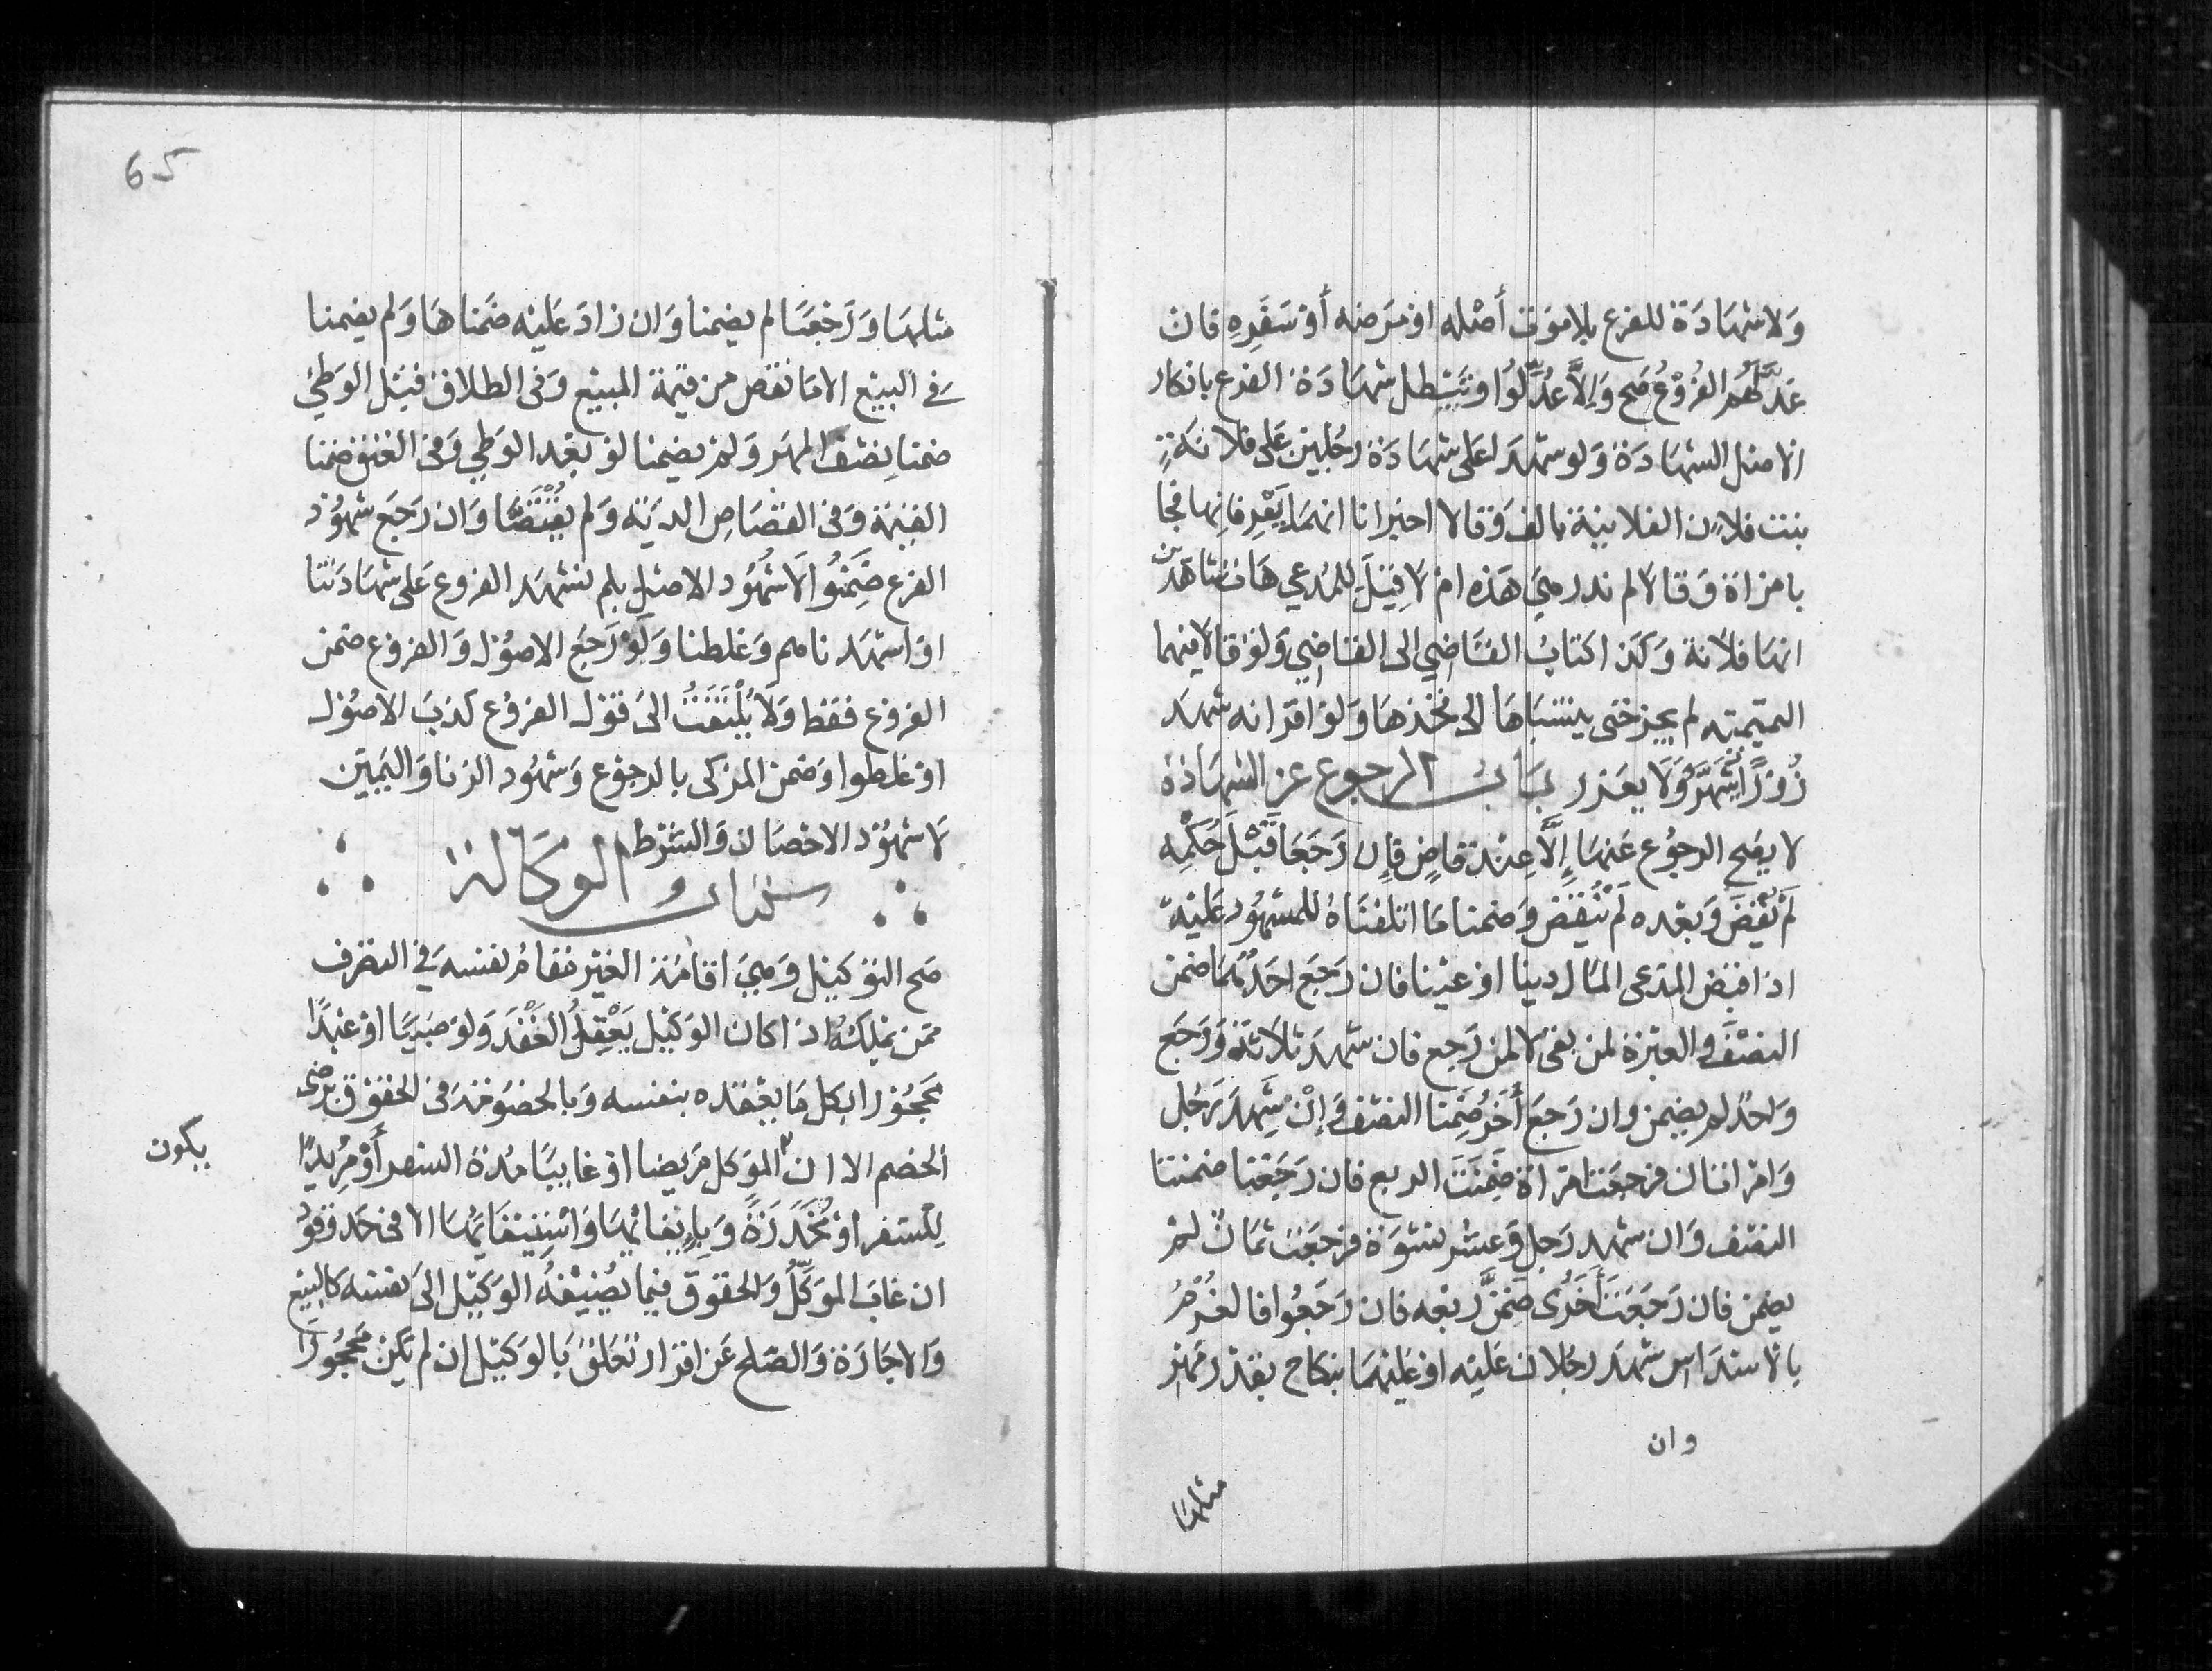 وَلا شهَادَة للفرع بلا موت أصْله او مرضه أو سَفَرِهِ فان
عَدَّلَهُم الفُروْعُ صَح وَاِلَّا عُدِّلُوا وتَبْطل شهَادَة الفرع بانكار
الاصل الشهَادَة وَلو شهدَا على شهَادَة رجُلين عَلى فلانَةٍ
بنت فلان الفلانية بالف وَقالا اخبرانا انهمَا يَعْرِفانِها فجَا
بامراة وَقالا لم ندر هيَ هَذه ام لا قِيْلَ للمُدعي هَات شاهدَين
انهَا فلانة وَكذا كتابُ القاضي الى القاضي وَلو قالا فيهما
التميمية لم يجز حتى ينسبَاهَا الى فخذهَا وَلو اقر انه شهدَ
زُوْرًا يُشَهَّرُ وَلَا يعَزر بَابُ الرجوع عن الشهَادَة
لا يصَح الرجوُع عَنهَا إِلَّا عِنْدَ قاضٍ فإن رَجَعَا قَبْلَ حُكْمِه
لَمْ يَقْضِ وَبعْده لَمْ يُنْقَضْ وَضمنا مَا اتلفَاهُ للمشهُود عَليْه
اذا قبَض المدَعى المَال دينا او عيْنا فان رَجَعَ احَدُهُمَا ضمن
النصْفَ وَالعبْرة لمن بقى لا لمن رَجع فان شهدَ ثلاثة وَرَجَع
وَاحدٌ لم يضمن وان رَجعَ أخَرُ ضَمِنا النصْف وَإِنْ شَهِدَ رَجُل
وَامْراتان فرجعَت امْراة ضَمِنَتْ الربع فان رَجَعَتا ضمنتا
النصْف وَان شهد رَجل وَعشر نسْوَة فرجَعَت ثمَان لمْ
يضمن فان رَجَعَتْ أُخْرَى ضَمِنَّ رُبعَه فان رَجَعُوا فالغُرْمُ
بالاسْدَاس شهدَ رجُلان عَليْه او عَليْهمَا بنكاح بقدْر مَهْر
وان
مثلهَا
65
مثلهَا وَرَجَعَا لم يضمنا وَان زادَ عَليْه ضَمناهَا وَلم يضمنا
في البيْع الا مَا نقصَ من قيمة المبيْع وَفى الطلاق قبْل الوَطئ
ضمنا نِصْف المهَر وَلمْ يضمنا لوْ بعْد الوَطي وَفى العتق ضمنا
القيمَة وَفى القصَاص الديَة وَلم يُقْتَصَّا وَان رَجَع شهُوْد
الفرع ضَمِنُوا لَا شُهُوْد الاصْل بلم نشهد الفروع عَلى شهَادَتنا
او اشهدناهم وَغلطنا وَلَوْ رَجَعَ الاصوُل وَالفروع ضمن
الفروْع فقط وَلَا يُلْتَفَتُ الىَ قوْل الفروْع كذبَ الاصُوْل
او غلطوا وَضمن المزكى بالرجوْع وَشهُود الزنا وَاليَمين
لَا شهُوْد الاحْصَان وَالشرْط
كتاب الوكالة
صَح التوْكيْل وَهيَ اقامَة الغيْر مقامُ نفسه في التصَرف
ممن يَمْلِكهُ اذا كان الوَكيْل يَعْقِلُ العَقْدَ وَلوْ صَبيًا اوْ عَبدًا
مَحجُوْرا بكل مَا يعْقده بنفسه وَبالخصُوْمَة فى الحقوْق برضى
الخصم الا ان الموَكل مَريضا اوْ غايبًا مُدة السفر أوْ مُريْدًا
يكون
لِلسفر اوْ مُخَدَرَةً وَبِإيْفائها وَاسْتِيْفَائهَا الا فى حَد وَقوْد
ان غابَ الموَكِّلُ وَالحقوق فيما يُضِيْفُهُ الوَكيْل الىَ نفسه كالبيْع
وَالاجَارَة وَالصَلح عَن اقرَار تعَلق بَالوَكيْل إن لم يَكن مَحجُورًا